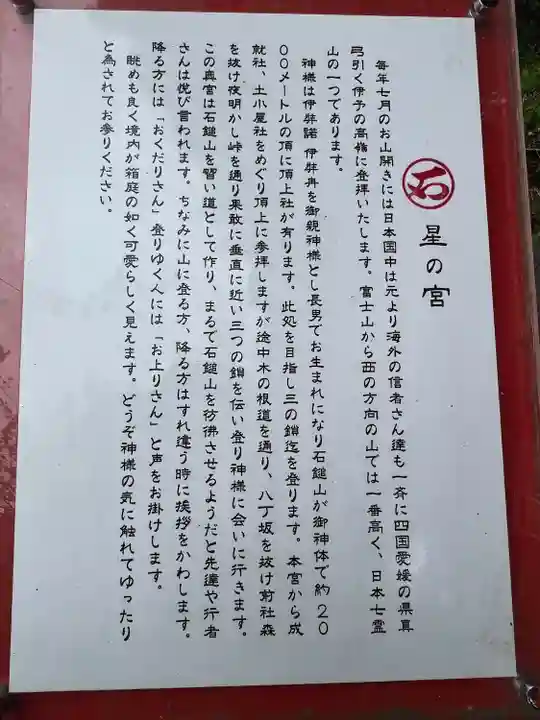 石 星の宮
毎年七月のお山開きには日本国中は元より海外の信者さん達も一斉に四国愛媛の県真
弓引く伊予の高嶺に登拝いたします。富士山から西の方向の山では一番高く、日本七霊
山の一つであります。
神様は伊弉諾 伊弉冉を御親神様とし長男でお生まれになり石鎚山が御神体で約20
00メートルの頂に頂上社が有ります。此処を目指し三の鎖迄を登ります。本宮から成
就社、土小屋社をめぐり頂上に参拝しますが途中木の根道を通り、八丁坂を抜け前社森
を抜け夜明かし峠を通り果敢に垂直に近い三つの鎖を伝い登り神様に会いに行きます。
この真宮は石鎚山を習い道として作り、まるで石鎚山を彷彿させるようだと先達や行者
さんは悦び言われます。ちなみに山に登る方、降る方はすれ違う時に挨拶をかわします。
降る方には「おくだりさん」登りゆく人には「お上りさん」と声をお掛けします。
眺めも良く境内が箱庭の如く可愛らしく見えます。どうぞ神様の気に触れてゆったり
と為されてお参りください。